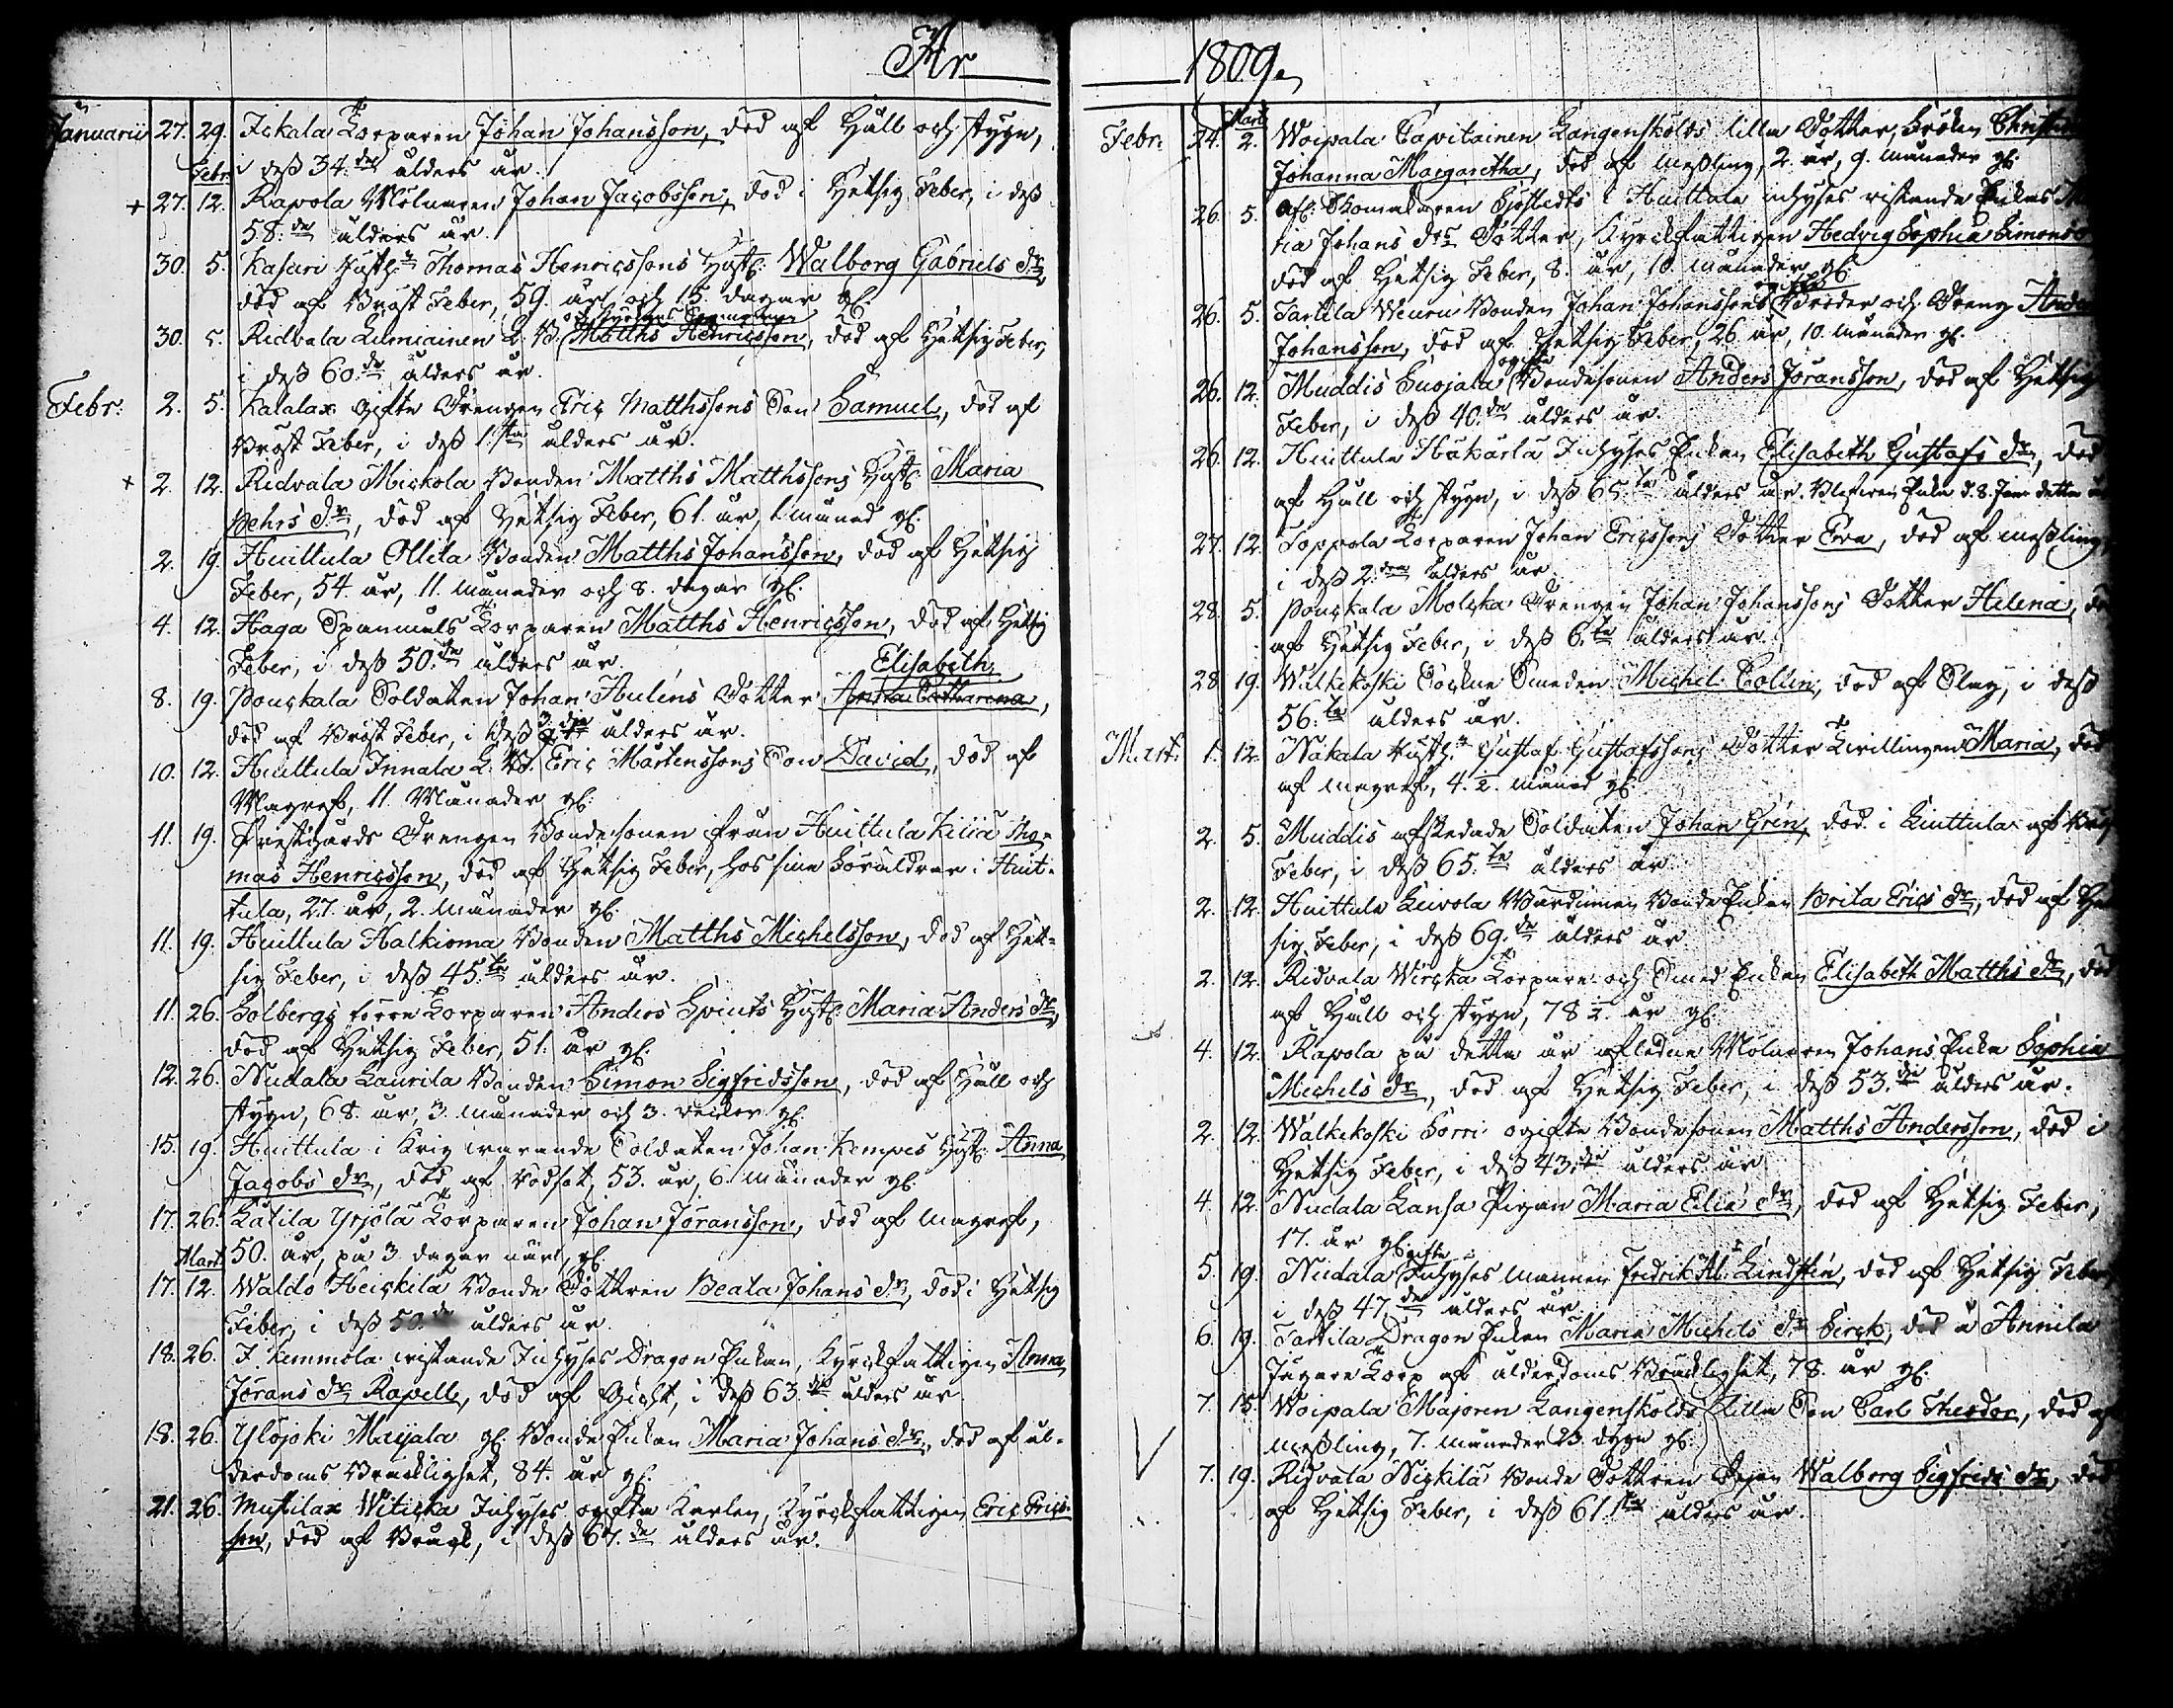 År
Januarii 27. 29. Jekala Torparen Johan Johansson, död af Håll och stygn,
Febr. i deß 34:de ålders år.
+ 27. 12. Rapola Mölnaren Johan Jacobsson, död i Hetsig Feber, i deß
58:de ålders år.
30. 5. Kasari Thomas Henricssons Hust: Walborg Gabriels dr,
död af Bröst Feber, 59. år och 15. dagar gl.
30. 5. Ridvala Lemiainen L. B. Matths Henricsson, död af Hetsig Feber,
i deß 60:de ålders år.
Febr: 2. 5. Kalalax gifte Drengen Eric Matthssons Son Samuel, död af
Bröst Feber, i deß 1:sta ålders år.
+ 2. 12. Ridvala Mickola Bonden Matths Matthssons Hust: Maria
Pehrs dr, död af Hetsig Feber, 61. år, 1. månad gl.
2. 19. Huittula Ollila Bonden Matths Johansson, död af Hetsig
Feber, 54. år, 11. månader och 8. dagar gl.
4. 12. Haga Spannuels Torparen Matths Henricsson, död af Hetsig
Feber, i deß 50:de ålders år.
Elisabeth
8. 19. Pouckala Soldaten Johan Hulens Dotter Anna Catharina,
död af Bröst Feber, i deß 3:dje ålders år.
10. 12. Huittula Innala L. B. Eric Mårtenssons Son David, död af
Magref, 11. Månader gl.
11. 19. Prestgårds Drengen Bondesonen från Huittula Kiliä Tho-
mas Henricsson, död af Hetsig Feber, hos sina Föräldrar i Huit-
tula, 27. år, 2. månader gl.
11. 19. Huittula Halkioma Bonden Matths Michelsson, död af Het-
sig Feber, i deß 45:te ålders år.
11. 26. Solbergs förre Torparen Anders Hust: Maria Anders dr,
död af Hetsig Feber, 51. år gl.
12. 26. Nudala Laurila Bonden Simon Sigfridsson, död af Håll och
stygn, 68. år, 3. månader och 3. veckor gl.
15. 19. Huittula i Krig warande Soldaten Johan Kempes Hust: Anna
Jacobs dr, död af Rödsot, 53. år, 6. Månader gl.
17. 26. Lätila Yrjölä Torparen Johan Jöransson, död af Magref,
Mart. 50. år, på 3. dagar när, gl.
17. 12. Waldo Heickilä Bonde Dottren Beata Johans dr, död i Hetsig
Feber, i deß 50:de ålders år.
18. 26. I Kemmola wistande Inhyses Dragon Enkan, Kyrckfattigen Anna
Jörans dr Rapell, död af Gickt, i deß 63:dje ålders år.
18. 26. Ylöjoki Maijala gl. Bonde Enkan Maria Johans dr, död af ål-
derdoms Bräcklighet, 84. år gl.
21. 26. Mustilax Witicka Inhyses ogifta Karlen, Kyrckfattigen Eric Erics-
son, död af Bråck, i deß 67:de ålders år.
1809.
Mart.
Febr: 24. 2. Woipala Capitainen Langenskölds lilla Dotter, Fröken
Johanna Margaretha, död af meßling, 2. år, 9. månader gl.
26. 5. Afl. Skomakaren Sjöstedts i Huittula inhyses wistande Enkas
ria Johans drs Dotter, Kyrckfattigen Hedvig Sophia
död af Hetsig Feber, 8. år, 10. månader gl.
26. 5. Tarttila Bonden Johan Johanssons Broder och Dreng
Johansson, död af Hetsig Feber, 26. år, 10. månader gl.
ogifte
26. 12. Muddis Suojala Bondesonen Anders Jöransson, död af Hetsig
Feber, i deß 40:de ålders år.
26. 12. Huittula Hakarla Inhyses Enkan Elisabeth Gustafs dr, död
af Håll och stygn, i deß 65:te ålders år. Blef Enka d. 8. Jan: detta
27. 12. Toppola Torparen Johan Ericssons Dotter Eva, död af meßling,
i deß 2:dra ålders år.
28. 5. Pouckala Molcka Drengen Johan Johanssons Dotter Helena,
af Hetsig Feber, i deß 6:te ålders år.
28. 19. Walkekoski Sockne Smeden Michel Collin, död af Slag, i deß
56:te ålders år.
Mart: 1. 12. Nakala Gustaf Gustafssons Dotter Tvillingen Maria, död
af magref, 4. ½. månad gl.
2. 5. Muddis afskedade Soldaten Johan Grén, död i Liuttula af
Feber, i deß 65:te ålders år.
2. 12. Huittula Leivola Bonde Enkan Brita Erics dr, död af Het
sig Feber, i deß 69:de ålders år.
2. 12. Ridvala Wircka Torpare och Smed Enkan Elisabeth Matths dr, död
af Håll och stygn, 78 ½. år gl.
4. 12. Rapola på detta år aflidne Mölnaren Johans Enka Sophia
Michels dr, död af Hetsig Feber, i deß 53:dje ålders år.
2. 12. Walkekoski Sorri ogifte Bondesonen Matths Andersson, död i
Hetsig Feber, i deß 43:dje ålders år.
4. 12. Nudala Lansa Pigan Maria Eliæ dr, död af Hetsig Feber,
17. år gl.
gifte
5. 19. Nudala Inhyses Mannen Fredrik Lindsten, död af Hetsig Feber,
i deß 47:de ålders år.
6. 19. Tarttila Dragon Enkan Maria Michels dr Birck, död å Annila
Jägare Torp af ålderdoms Bräcklighet, 78. år gl.
7. 15. Woipala Majoren Langenskölds lilla Son Carl Theodor, död af
meßling, 7. månader 23. dygn gl.
7. 19. Ridvala Nickilä Bonde Dottren Pigan Walborg Sigfrids dr, död
af Hetsig Feber, i deß 61:sta ålders år.